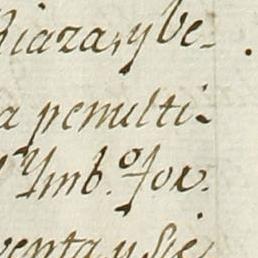 Riaza, y Ve-
a penulti-
Ymb.º Jov.
venta y Sie